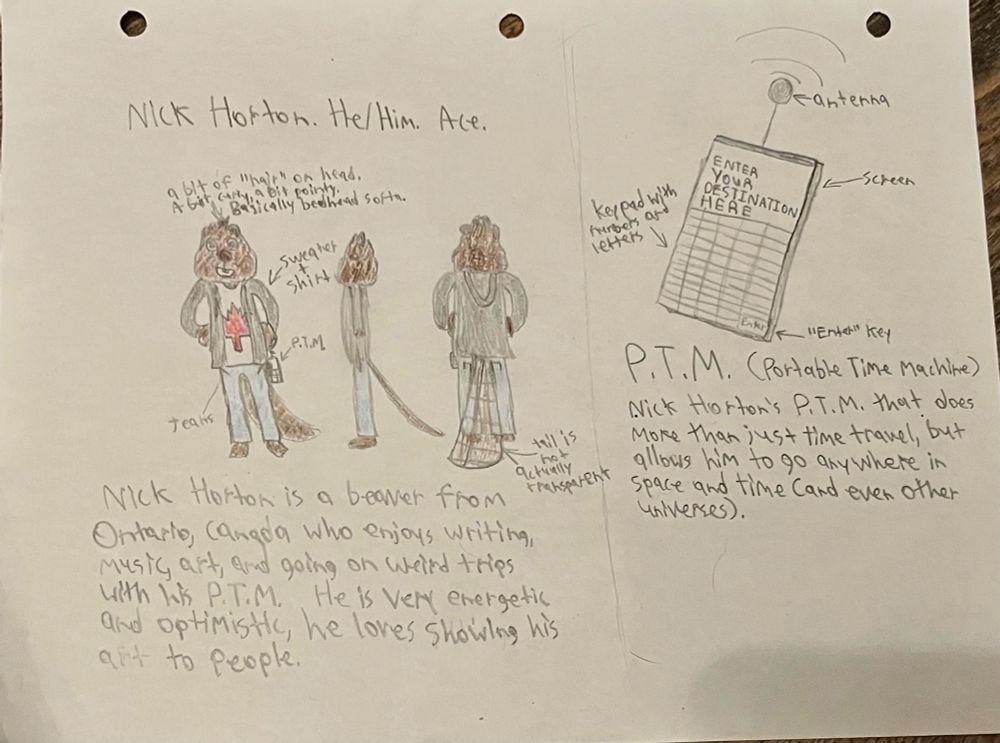 Nick Horton. He/Him. Ace.
a bit of "hair" on head.
A bit curly, a bit pointy.
Basically bedhead sorta.
sweater
+
shirt
P.T.M.
jeans
tail is
not
actually
transparent
Nick Horton is a beaver from
Ontario, Canada who enjoys writing,
music, art, and going on weird trips
with his P.T.M. He is very energetic
and optimistic, he loves showing his
art to people.
antenna
ENTER
YOUR
DESTINATION
HERE
screen
Keypad with
numbers and
letters
Enter
"Enter" Key
P.T.M. (Portable Time Machine)
Nick Horton's P.T.M. that does
more than just time travel, but
allows him to go anywhere in
space and time (and even other
universes).